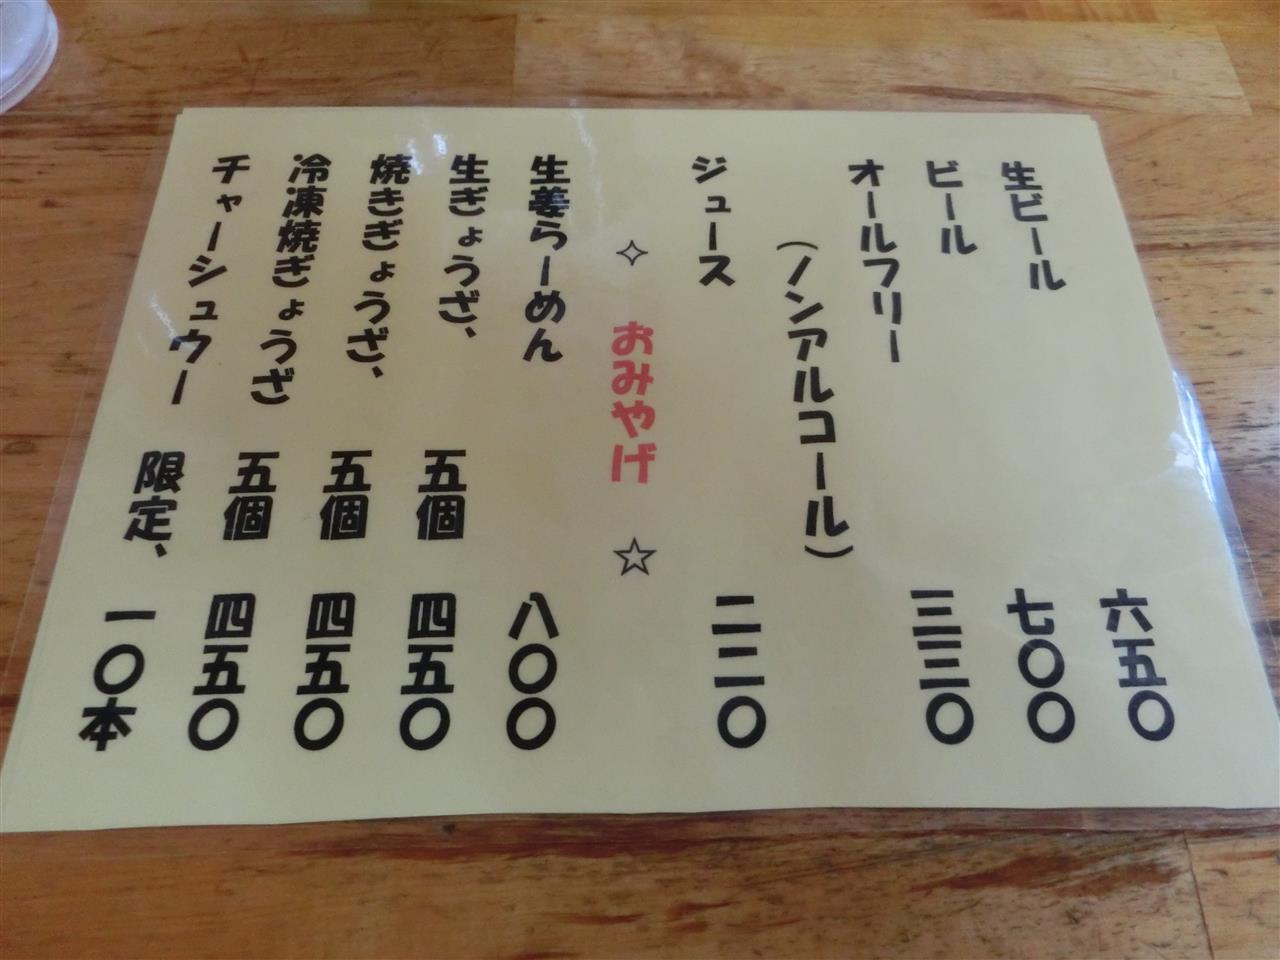 生ビール 六五〇
ビール 七〇〇
オールフリー 三三〇
(ノンアルコール)
ジュース 二二〇
✧ おみやげ ☆
生姜らーめん 八〇〇
生ぎょうざ、 五個 四五〇
焼きぎょうざ、 五個 四五〇
冷凍焼ぎょうざ 五個 四五〇
チャーシュウー 限定、一〇本